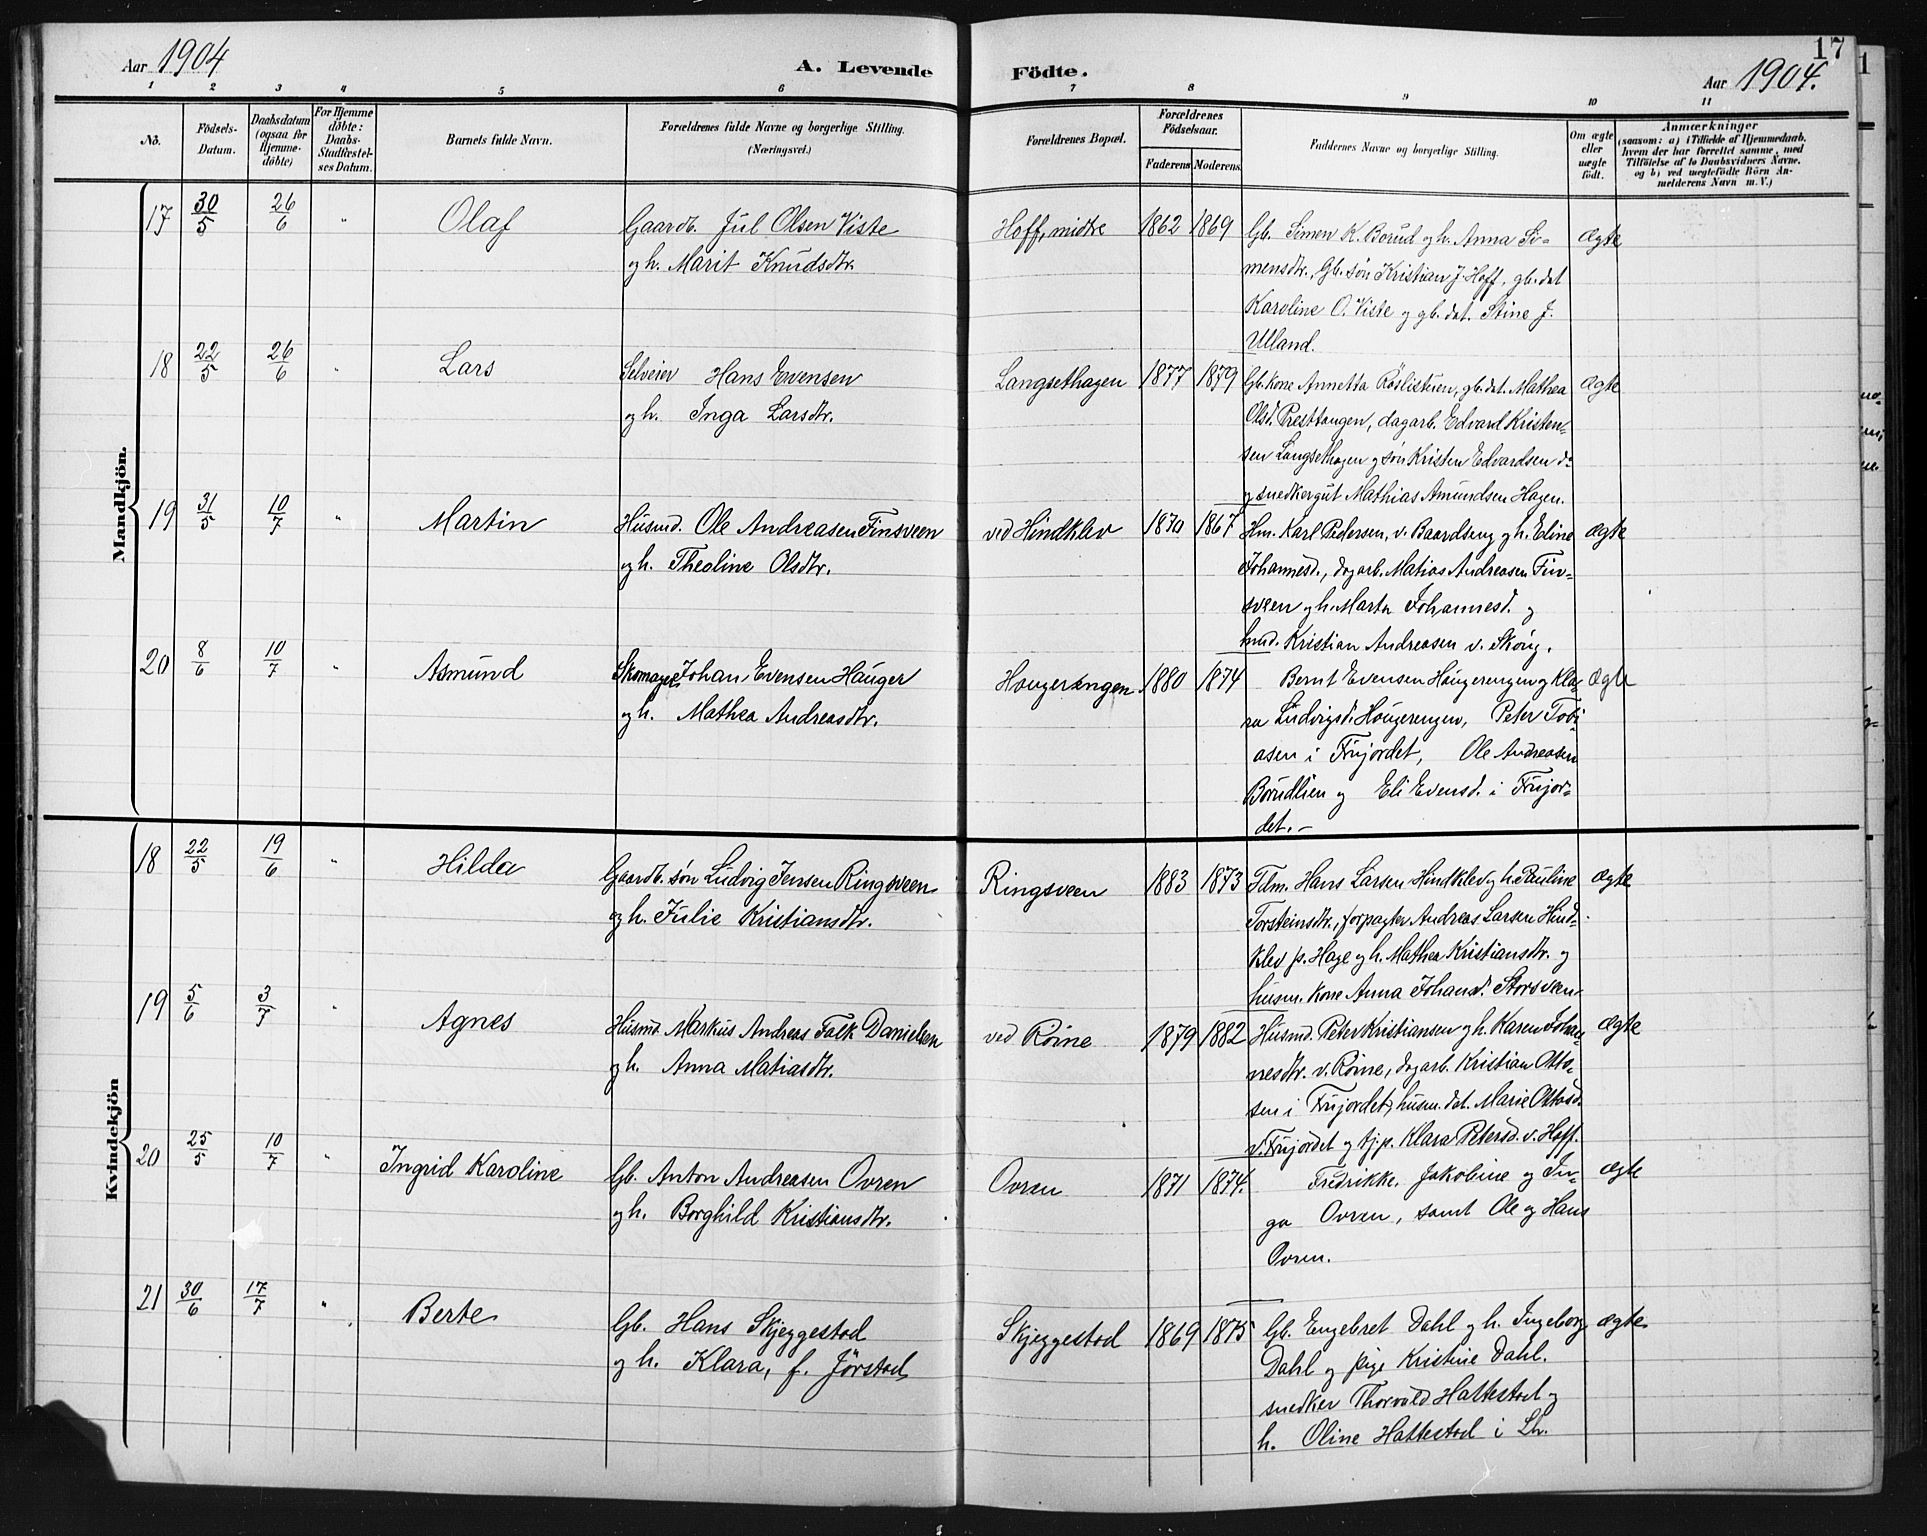 17
Aar 1904
A. Levende Födte.
Aar 1904.
1 2 3 4 5 6 7 8 9 10 11
No.
Födsels-
Datum.
Daabsdatum
(ogsaa for
Hjemme-
döbte)
For Hjemme
döbte:
Daabs-
Stadfæstel-
ses Datum.
Barnets fulde Navn.
Forældrenes fulde Navne og borgerlige Stilling.
(Næringsvei.)
Forældrenes Bopæl.
Forældrenes
Födselsaar.
Faderens Moderens
Faddernes Navne og borgerlige Stilling.
Om ægte
eller
uægte
födt.
Anmærkninger
(saasom: a) i Tilfælde af Hjemmedaab.
hvem der har forrettet samme, med
Tilföielse af to Daabsvidners Navne.
og b) ved uægtefödte Börn An-
melderens Navn m. V.)
Mandkjön.
17 30/5 26/6 " Olaf
Gaardb. Jul Olsen Viste
og h. Marit Knudsdtr.
Hoff, midtre 1862 1869
Gb. Simen K. Borud og h. Anna Si-
mensdtr., Gb. søn Kristian J. Hoff, gb. dat
Karoline O. Viste og gb. dat. Stine J.
Ulland.
ægte
18 22/5 26/6 " Lars
Selveier Hans Evensen
og h. Inga Larsdtr.
Langsethagen 1877 1879
Gb. kone Annetta Röslistuen, gb. dat. Mathea
Olsd. Presttangen, dagarb. Edvard Kristen-
sen Langsethagen og søn Kristen Edvardsen do
og snedkergut Mathias Amundsen Hagen.
ægte
19 31/5 10/7 " Martin
Husmd. Ole Andreasen Finsveen
og h. Theoline Olsdtr.
ved Hindklev 1870 1867
Hm. Karl Pedersen, v. Baardseng og h. Eline
Johannesd., dagarb. Matias Andreasen Fin-
sveen og h. Marta Johannesd. og
hmd. Kristian Andreasen v. Skoug.
ægte
20 8/6 10/7 " Asmund
Skomager Johan Evensen Hauger
og h. Mathea Andreasdtr.
Hougerengen 1880 1874
Bernt Evensen Hougerengen og Kla-
ra Ludvigsd. Hougerengen, Peter Tobi-
asen i Frujordet, Ole Andreasen
Borudlien og Eli Evensd. i Frujor-
det. -
ægte
Kvindekjön
18 22/5 19/6 " Hilda
Gaardb. søn Ludvig Jensen Ringsveen
og h. Julie Kristiansdtr.
Ringsveen 1883 1873
Tdm. Hans Larsen Hindklev og h. Pauline
Torsteinsdtr., forpagter Andreas Larsen Hind-
klev p. Hage og h. Mathea Kristiansdtr. og
husm. kone Anna Johansd. Storsveen
ægte
19 5/6 3/7 " Agnes
Husmd. Markus Andreas Falk Danielsen
og h. Anna Matiasdtr.
ved Röine 1879 1882
Husmd. Peter Kristiansen og h. Karen Johan-
nesdtr. v. Röine, dagarb. Kristian Otto-
sen i Frujordet, husm. dat. Marie Ottosd.
v. Frujordet og tjp. Klara Petersd. v. Hoff.
ægte
20 25/5 10/7 " Ingrid Karoline
Gb. Anton Andreasen Ovren
og h. Borghild Kristiansdtr.
Ovren 1871 1874.
Fredrikke, Jakobine og In-
ga Ovren, samt Ole og Hans
Ovren.
ægte
21 30/6 17/7 " Berte
Gb. Hans Skjeggestad
og h. Klara, f. Jörstad
Skjeggestad 1869 1875
Gb. Engebret Dahl og h. Ingeborg
Dahl og pige Kristine Dahl.
snedker Thorvald Hattestad og
h. Oline Hattestad i Lh.
ægte